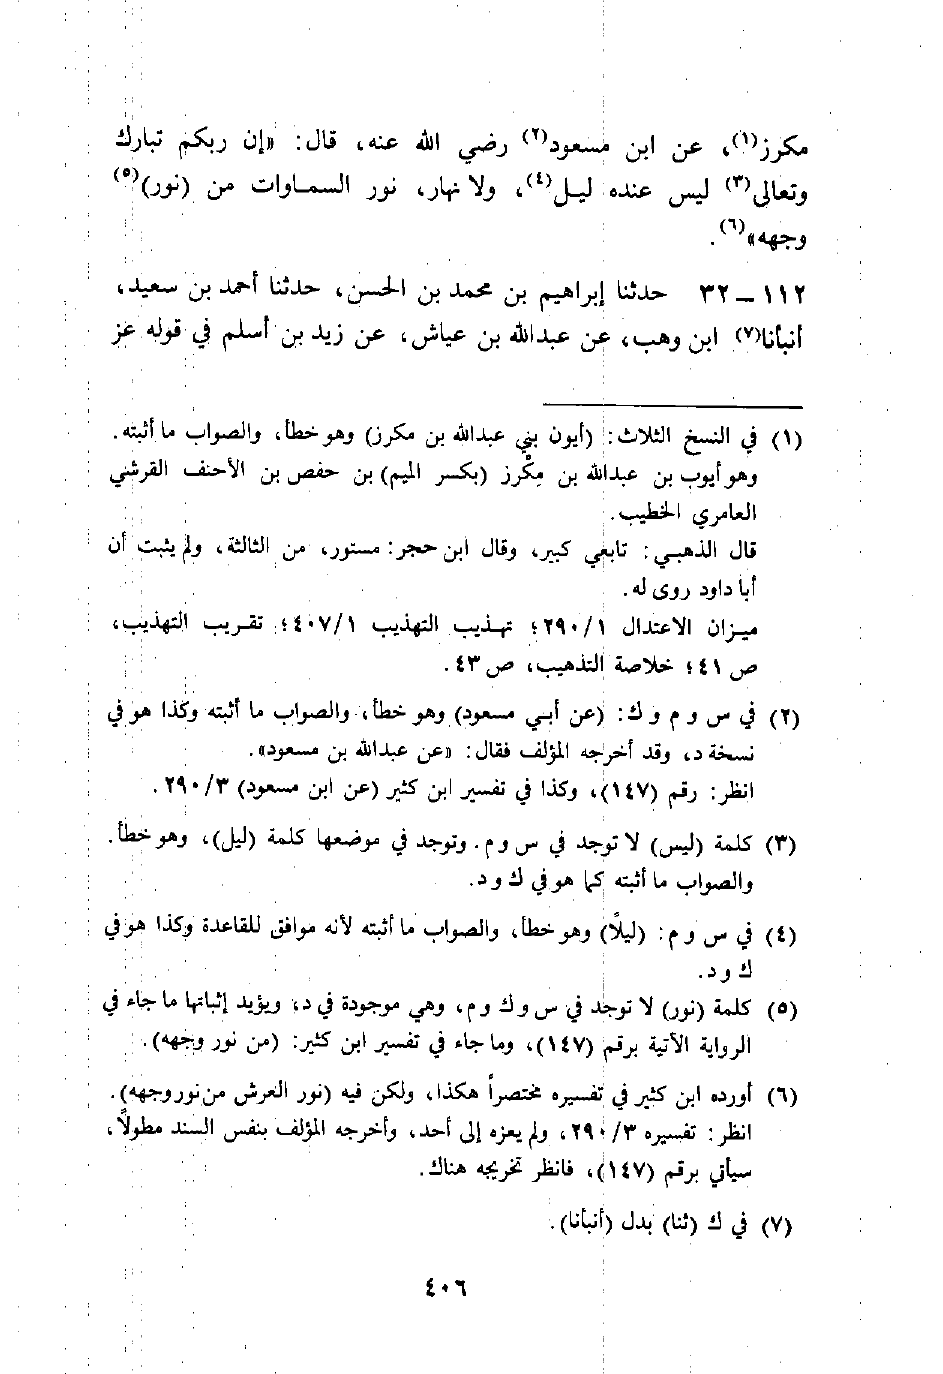 مكرز(١)، عن ابن مسعود(٢) رضي الله عنه، قال: «إن ربكم تبارك
وتعالى(٣) ليس عنده ليل(٤)، ولا نهار، نور السماوات من (نور)(٥)
وجهه»(٦).
١١٢ – ٣٢ حدثنا إبراهيم بن محمد بن الحسن، حدثنا أحمد بن سعيد،
أنبأنا(٧) ابن وهب، عن عبدالله بن عياش، عن زيد بن أسلم في قوله عز
(١) في النسخ الثلاث: (أيون بني عبدالله بن مكرز) وهو خطأ، والصواب ما أثبته.
وهو أيوب بن عبدالله بن مِكْرز (بكسر الميم) بن حفص بن الأحنف القرشي
العامري الخطيب.
قال الذهبي: تابعي كبير، وقال ابن حجر: مستور، من الثالثة، ولم يثبت أن
أبا داود روى له.
ميزان الاعتدال ٢٩٠/١؛ تهذيب التهذيب ٤٠٧/١؛ تقريب التهذيب،
ص ٤١؛ خلاصة التذهيب، ص ٤٣.
(٢) في س و م و ك: (عن أبي مسعود) وهو خطأ، والصواب ما أثبته وكذا هو في
نسخة د، وقد أخرجه المؤلف فقال: «عن عبدالله بن مسعود».
انظر: رقم (١٤٧)، وكذا في تفسير ابن كثير (عن ابن مسعود) ٢٩٠/٣.
(٣) كلمة (ليس) لا توجد في س و م. وتوجد في موضعها كلمة (ليل)، وهو خطأ.
والصواب ما أثبته كما هو في ك و د.
(٤) في س و م: (ليلًا) وهو خطأ، والصواب ما أثبته لأنه موافق للقاعدة وكذا هو في
ك و د.
(٥) كلمة (نور) لا توجد في س و ك و م، وهي موجودة في د، ويؤيد إثباتها ما جاء في
الرواية الآتية برقم (١٤٧)، وما جاء في تفسير ابن كثير: (من نور وجهه).
(٦) أورده ابن كثير في تفسيره مختصراً هكذا، ولكن فيه (نور العرش من نور وجهه).
انظر: تفسيره ٢٩٠/٣، ولم يعزه إلى أحد، وأخرجه المؤلف بنفس السند مطولًا،
سيأتي برقم (١٤٧)، فانظر تخريجه هناك.
(٧) في ك (ثنا) بدل (أنبأنا).
٤٠٦